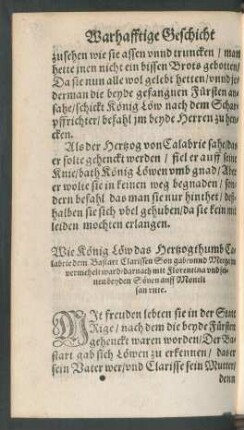 Warhafftige Geschicht
zusehen wie sie assen vnnd truncken / man
hette jnen nicht ein bissen Brots gebotten
Da sie nun alle wol gelebt hetten / vnnd je-
derman die beyde gefangnen Fürsten an-
sahe / schickt König Löw nach dem Schar-
pffrichter / befahl jm beyde Herren zu hen-
cken.
Als der Hertzog von Calabrie sahe das
er solte gehenckt werden / fiel er auff seine
Knie / bath König Löwen vmb gnad / Aber
er wolte sie in keinen weg begnaden / son-
dern befahl das man sie nur hinthet / deß-
halben sie sich vbel gehuben / da sie kein mit
leiden mochten erlangen.
Wie König Löw das Hertzogthumb Ca-
labrie dem Bastart Clarissen Son gab / vnnd
vermehelt ward / darnach mit Florentina vnd
beyden Sönen auff
san ritte.
MIt freuden lebten sie in der Statt
Rige / nach dem die beyde Fürsten
gehenckt waren worden / Der Ba-
start gab sich Löwen zu erkennen / das er
sein Vater wer / vnd Clarisse sein Mutter /
denn